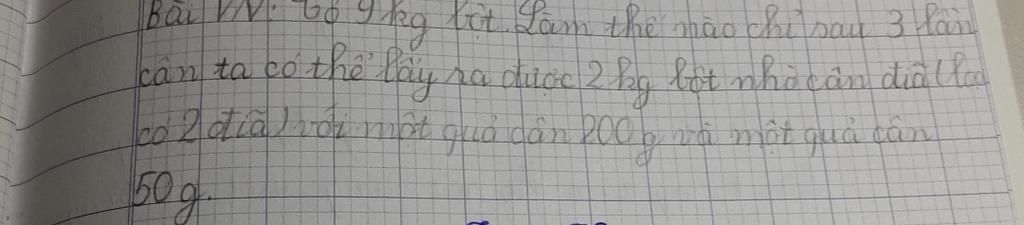 Bài VN: Có 9 kg bột. Làm thế nào chỉ sau 3 lần
cân ta có thể lấy ra được 2 kg bột nhờ cân đĩa (loại
có 2 đĩa) với một quả cân 200 g và một quả cân
50 g.